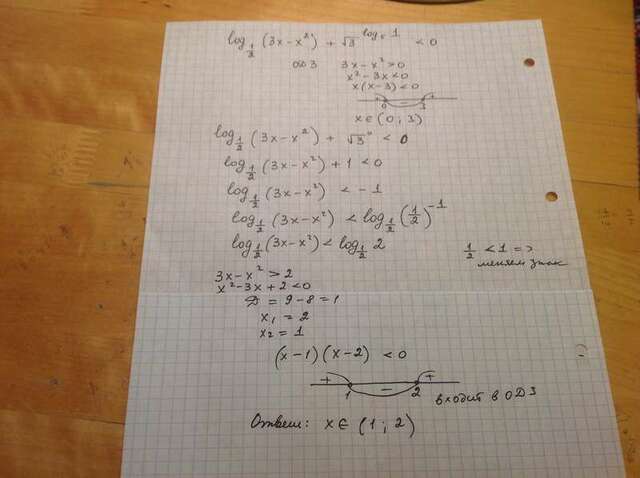 log_{1/3} (3x-x²) + √3^{log_5 1} < 0
ОДЗ 3x-x²>0
x²-3x<0
x(x-3)<0
+ - +
0 3
x∈(0;3)
log_{1/2} (3x-x²) + √3⁰ < 0
log_{1/2} (3x-x²) + 1 < 0
log_{1/2} (3x-x²) < -1
log_{1/2} (3x-x²) < log_{1/2} (1/2)^{-1}
log_{1/2} (3x-x²) < log_{1/2} 2
1/2 < 1 =>
меняем знак
3x-x²>2
x²-3x+2<0
D = 9-8=1
x₁ = 2
x₂ = 1
(x-1)(x-2) < 0
+ - +
1 2
входит в ОДЗ
Ответ: x∈(1;2)